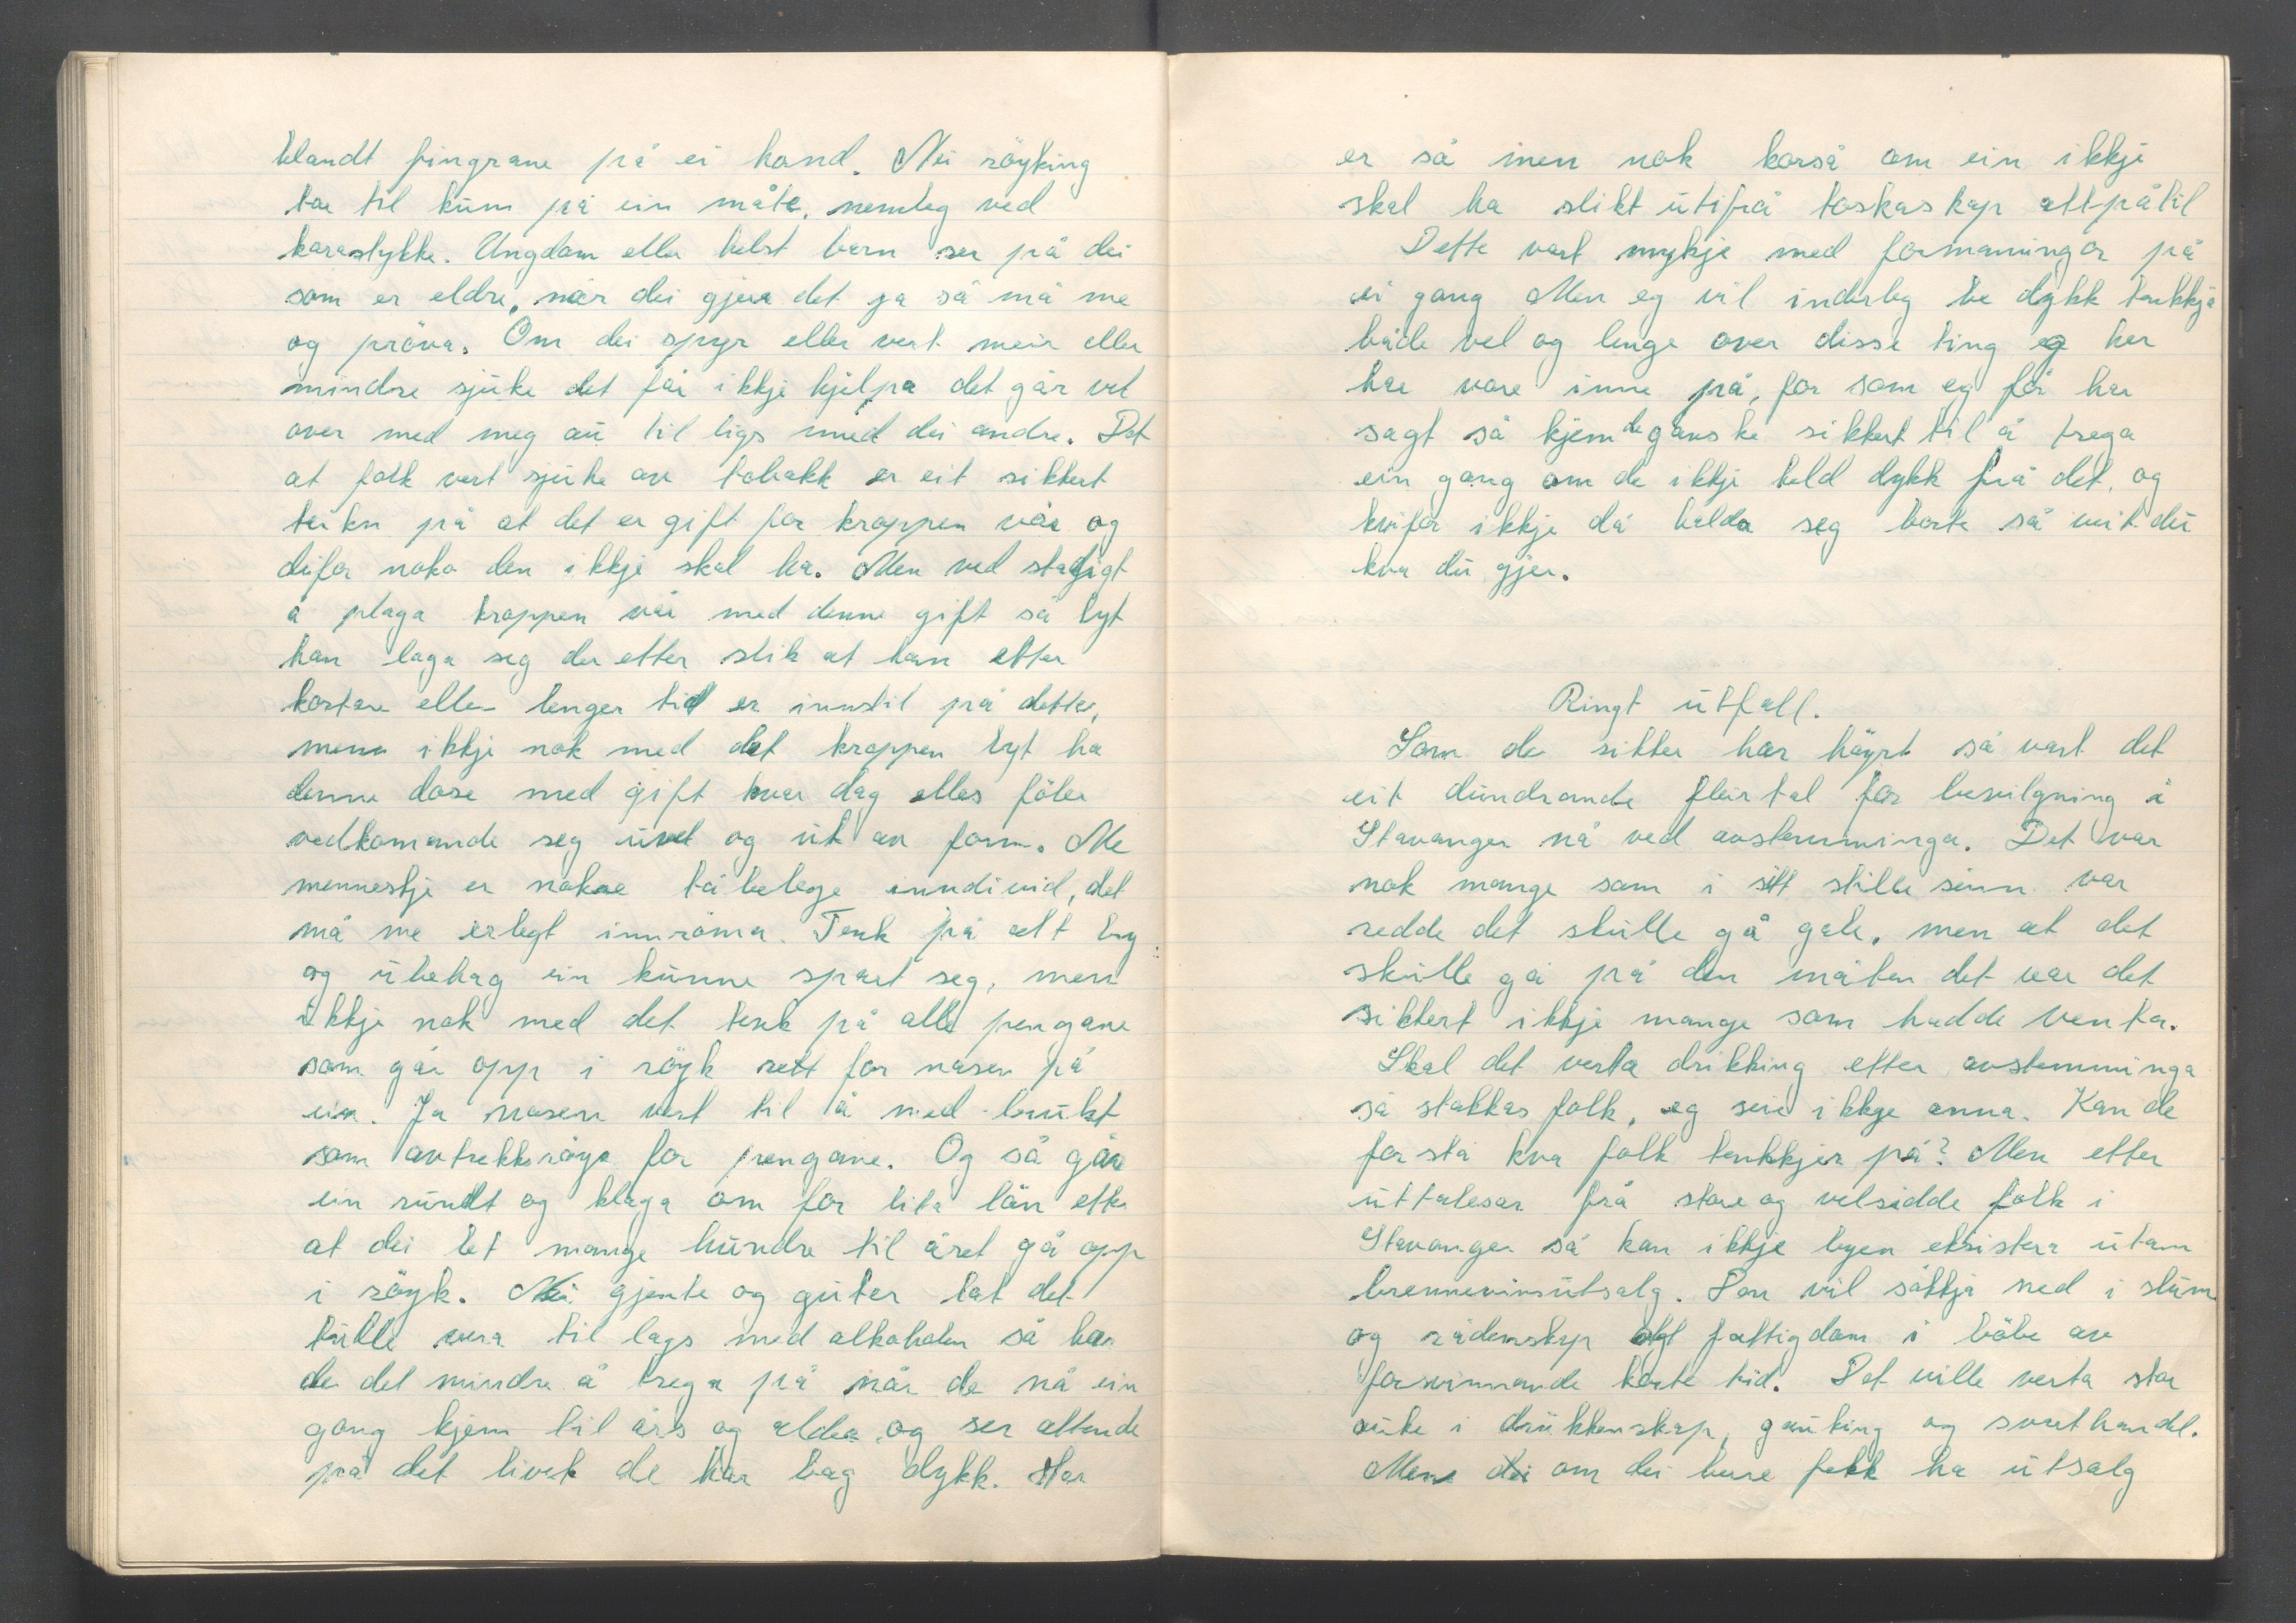 blandt fingrane på ei hand. Nei röyking
tar til kunn på ein måte, nemleg ved
karastykke. Ungdom eller helst barn ser på dei
som er eldre, når dei gjera det ja så må me
og pröva. Om dei spyr eller vert meir eller
mindre sjuke det får ikkje hjelpa det går vel
over med meg au til ligs med dei andre. Det
at folk vert sjuke av tobakk er eit sikkert
teikn på at det er gift for kroppen vår og
difor noko den ikkje skal ha. Men ved stadigt
å plaga kroppen vår med denne gift så lyt
han laga seg der etter slik at han etter
kortare eller lenger tid er innstil på dette,
men ikkje nok med det kroppen lyt ha
denne dose med gift kvar dag elles föler
vedkomande seg uvel og ut av form. Me
menneskje er nokre tåbelege inndivid, det
må me erlegt innröma. Tenk på alt
og ubehag ein kunne spart seg, men
ikkje nok med det tenk på alle pengane
som går opp i röyk rett for nasen på
ein. Ja nasen vert til å med brukt
som avtrekksröyr for pengane. Og så går
ein rundt og klaga om for lita lön etter
at dei let mange hundre til året gå opp
i röyk. Nei gjente og guter lat det
tulle vera til lags med alkoholen så har
de det mindre å trega på når de nå ein
gong kjem til års og alder og ser attende
på det livet de har bag dykk. Har
er så men nok korså om ein ikkje
skal ha slikt utifrå toskaskap attpåtil
Dette vart mykje med formaningar på
ei gang Men eg vil inderleg be dykk tenkkja
både vel og lenge over disse ting eg her
har vore inne på, for som eg för har
sagt så kjem de ganske sikkert til å trega
ein gong om de ikkje held dykk frå det, og
kvifor ikkje då halda seg borte så veit du
kva du gjer.
Ringt utfall.
Som de sikker har höyrt så vart det
eit dundrande fleirtal for bevilgning i
Stavanger nå ved avstemminga. Det var
nok mange som i sitt stille sinn var
redde det skulle gå gale, men at det
skulle gå på den måten det var det
sikkert ikkje mange som hadde venta.
Skal det verta drikking etter avstemminga
så stakkas folk, eg seie ikkje anna. Kan de
forstå kva folk tenkkjer på? Men etter
uttalesar frå store og velsidde folk i
Stavanger så kan ikkje byen eksistera utan
brennevinsutsalg. Den vil såkkja ned i slum
og rådenskap og fattigdom i löbe av
forsvinnande korte tid. Det ville verta stor
auke i drukkenskap, gauking og svarthandel.
Men dei om dei bere fekk ha utsalg